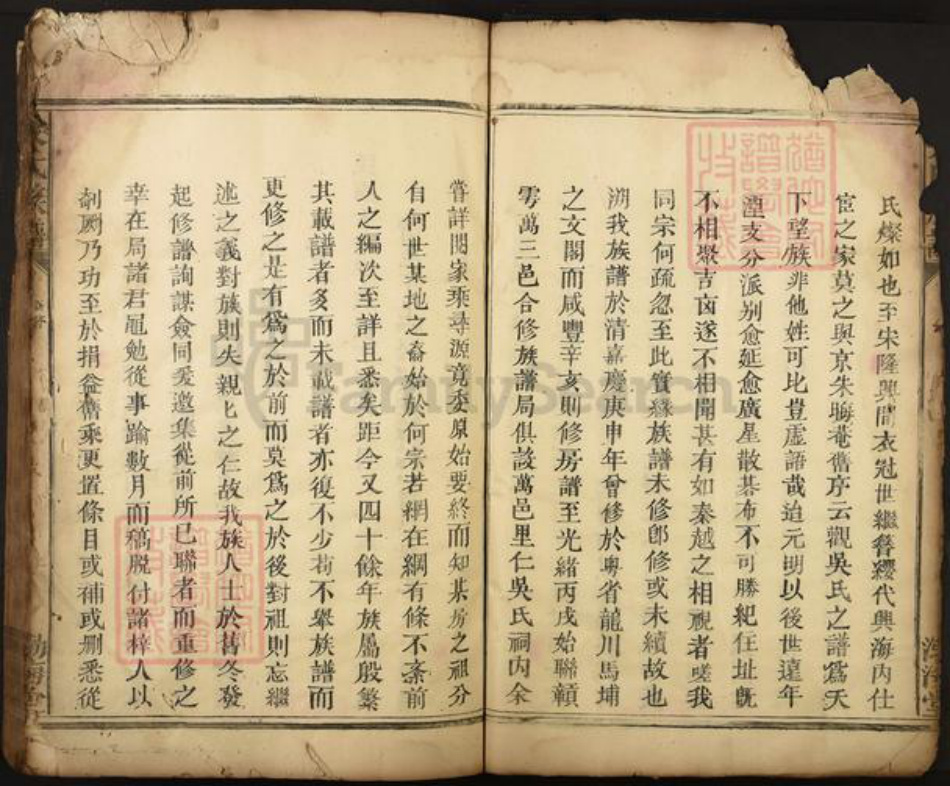 氏燦如也至宋隆興間衣冠世繼簪纓代興海內仕
宦之家莫之與京朱晦菴舊序云觀吳氏之譜爲天
下望族非他姓可比豈虛語哉迨元明以後世遠年
湮支分派別愈延愈廣星散碁布不可勝紀住址旣
不相聚吉凶遂不相聞甚有如秦越之相視者嗟我
同宗何疏忽至此實緣族譜未修卽修或未續故也
溯我族譜於清嘉慶庚申年曾修於粵省龍川馬埔
之文閣而咸豐辛亥則修房譜至光緒丙戌始聯贛
雩萬三邑合修族譜局俱設萬邑里仁吳氏祠內余
嘗詳閱家乘尋源竟委原始要終而知某房之祖分
自何世某地之裔始於何宗若網在綱有條不紊前
人之編次至詳且悉矣距今又四十餘年族屬殷繁
其載譜者多而未載譜者亦復不少苟不舉族譜而
更修之是有爲之於前而莫爲之於後對祖則忘繼
述之義對族則失親匕之仁故我族人士於舊冬發
起修譜詢謀僉同爰邀集從前所已聯者而重修之
幸在局諸君黽勉從事踰數月而稿脫付諸梓人以
剞劂乃功至於損益舊乘更置條目或補或刪悉從
渤海堂
FamilySearch